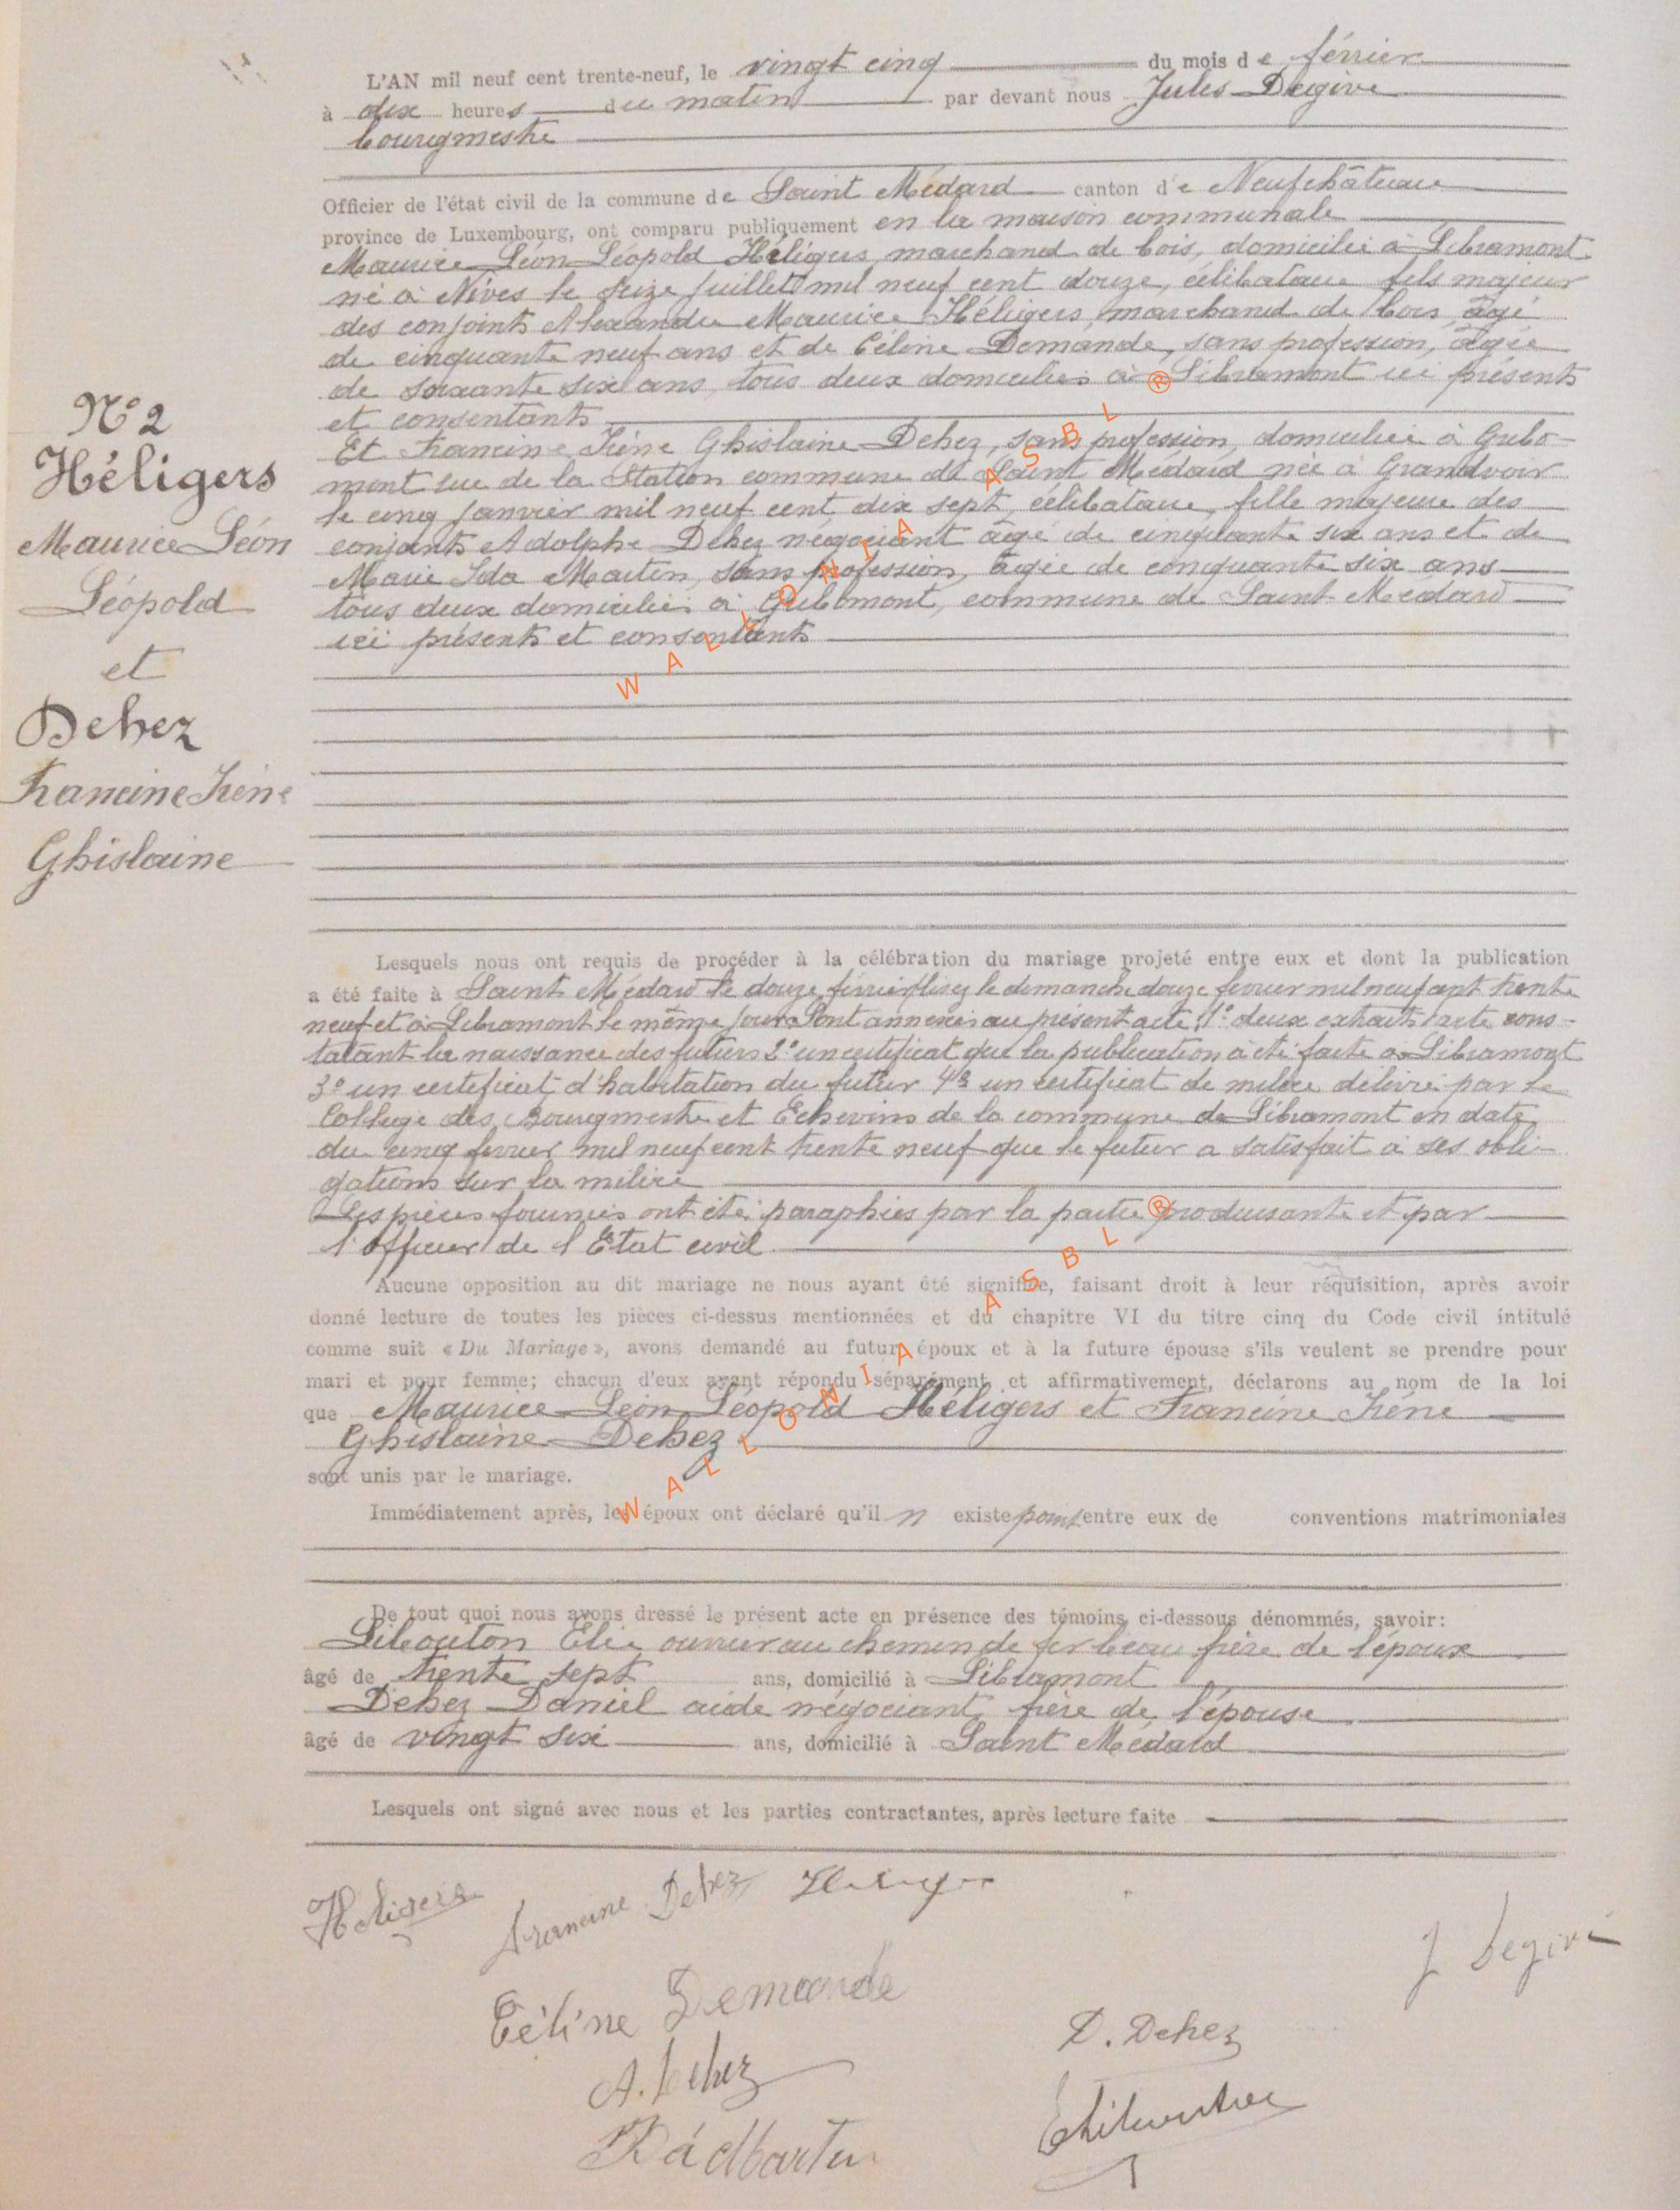 L'AN mil neuf cent trente-neuf, le vingt cinq du mois de février
à dix heures du matin par devant nous Jules Degive
bourgmestre
Officier de l'état civil de la commune de Saint Médard canton de Neufchâteau
province de Luxembourg, ont comparu publiquement en la maison communale
Maurice Léon Léopold Héligers, marchand de bois, domicilié à Libramont
né à Nives le seize juillet mil neuf cent douze, célibataire fils majeur
des conjoints Alexandre Maurice Héligers, marchand de bois, âgé
de cinquante neuf ans et de Céline Demande, sans profession, âgée
de soixante six ans, tous deux domiciliés à Libramont ici présents
et consentants
N° 2
Héligers
Maurice Léon
Léopold
et
Dehez
Francine Irène
Ghislaine
Et Francine Irène Ghislaine Dehez, sans profession, domiciliée à Gribo-
mont rue de la Station commune de Saint Médard née à Grandvoir
le cinq janvier mil neuf cent dix sept, célibataire, fille majeure des
conjoints Adolphe Dehez négociant âgé de cinquante six ans et de
Marie Ida Martin, sans profession, âgée de cinquante six ans
tous deux domiciliés à Gribomont, commune de Saint Médard
ici présents et consentants
WALLONIA ASBL ®
Lesquels nous ont requis de procéder à la célébration du mariage projeté entre eux et dont la publication
a été faite à Saint Médard le douze février lisez le dimanche douze février mil neuf cent trente
neuf et à Libramont le même jour. Sont annexés au présent acte: 1° deux extraits acte cons-
tatant la naissance des futurs 2° un certificat que la publication a été faite à Libramont
3° un certificat d'habitation du futur 4° un certificat de milice délivré par le
Collège des Bourgmestre et Echevins de la commune de Libramont en date
du cinq février mil neuf cent trente neuf que le futur a satisfait à ses obli-
gations sur la milice
Les pièces fournies ont été paraphées par la partie produisante et par
l'officier de l'Etat civil
Aucune opposition au dit mariage ne nous ayant été signifiée, faisant droit à leur réquisition, après avoir
donné lecture de toutes les pièces ci-dessus mentionnées et du chapitre VI du titre cinq du Code civil intitulé
comme suit « Du Mariage », avons demandé au futur époux et à la future épouse s'ils veulent se prendre pour
mari et pour femme; chacun d'eux ayant répondu séparément et affirmativement, déclarons au nom de la loi
que Maurice Léon Léopold Héligers et Francine Irène
Ghislaine Dehez
sont unis par le mariage.
Immédiatement après, les époux ont déclaré qu'il n existe point entre eux de conventions matrimoniales
WALLONIA ASBL ®
De tout quoi nous avons dressé le présent acte en présence des témoins ci-dessous dénommés, savoir:
Libouton Elie, ouvrier au chemin de fer beau frère de l'époux
âgé de trente sept ans, domicilié à Libramont
Dehez Daniel aide négociant, frère de l'épouse
âgé de vingt six ans, domicilié à Saint Médard
Lesquels ont signé avec nous et les parties contractantes, après lecture faite
Heligers Francine Dehez Heligers
J Degive
Céline Demande
D. Dehez
A. Dehez
ELibouton
Ida Martin